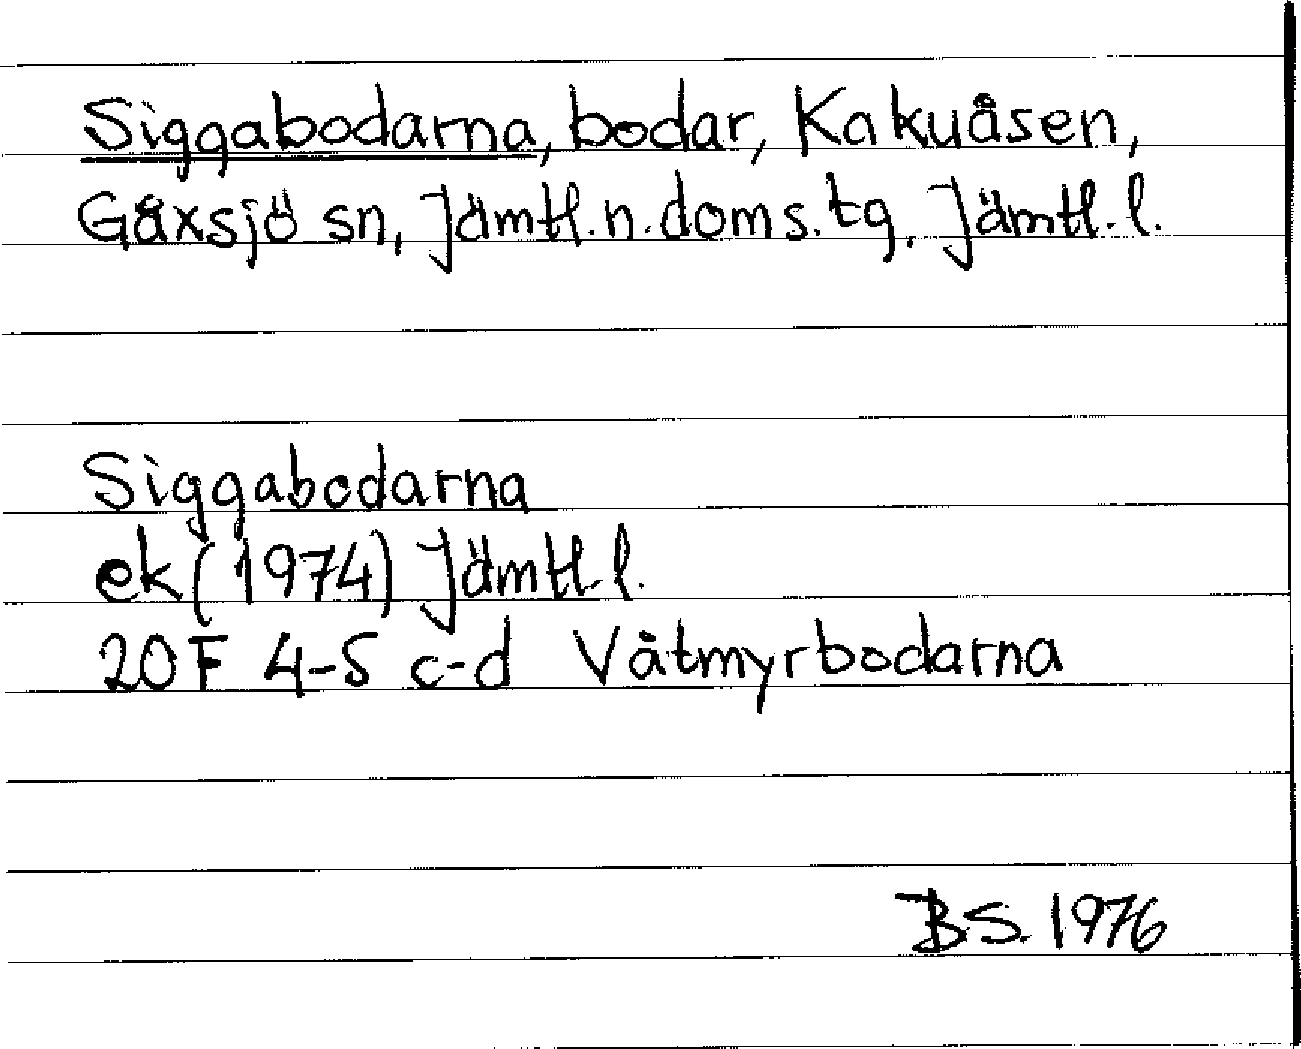 Siggabodarna, bodar, Kakuåsen,
Gåxsjö sn, Jämtl.n.doms.tg. Jämtl.l.
Siggabodarna
ek (1974) Jämtl.l.
20F 4-5 c-d Våtmyrbodarna
BS. 1976